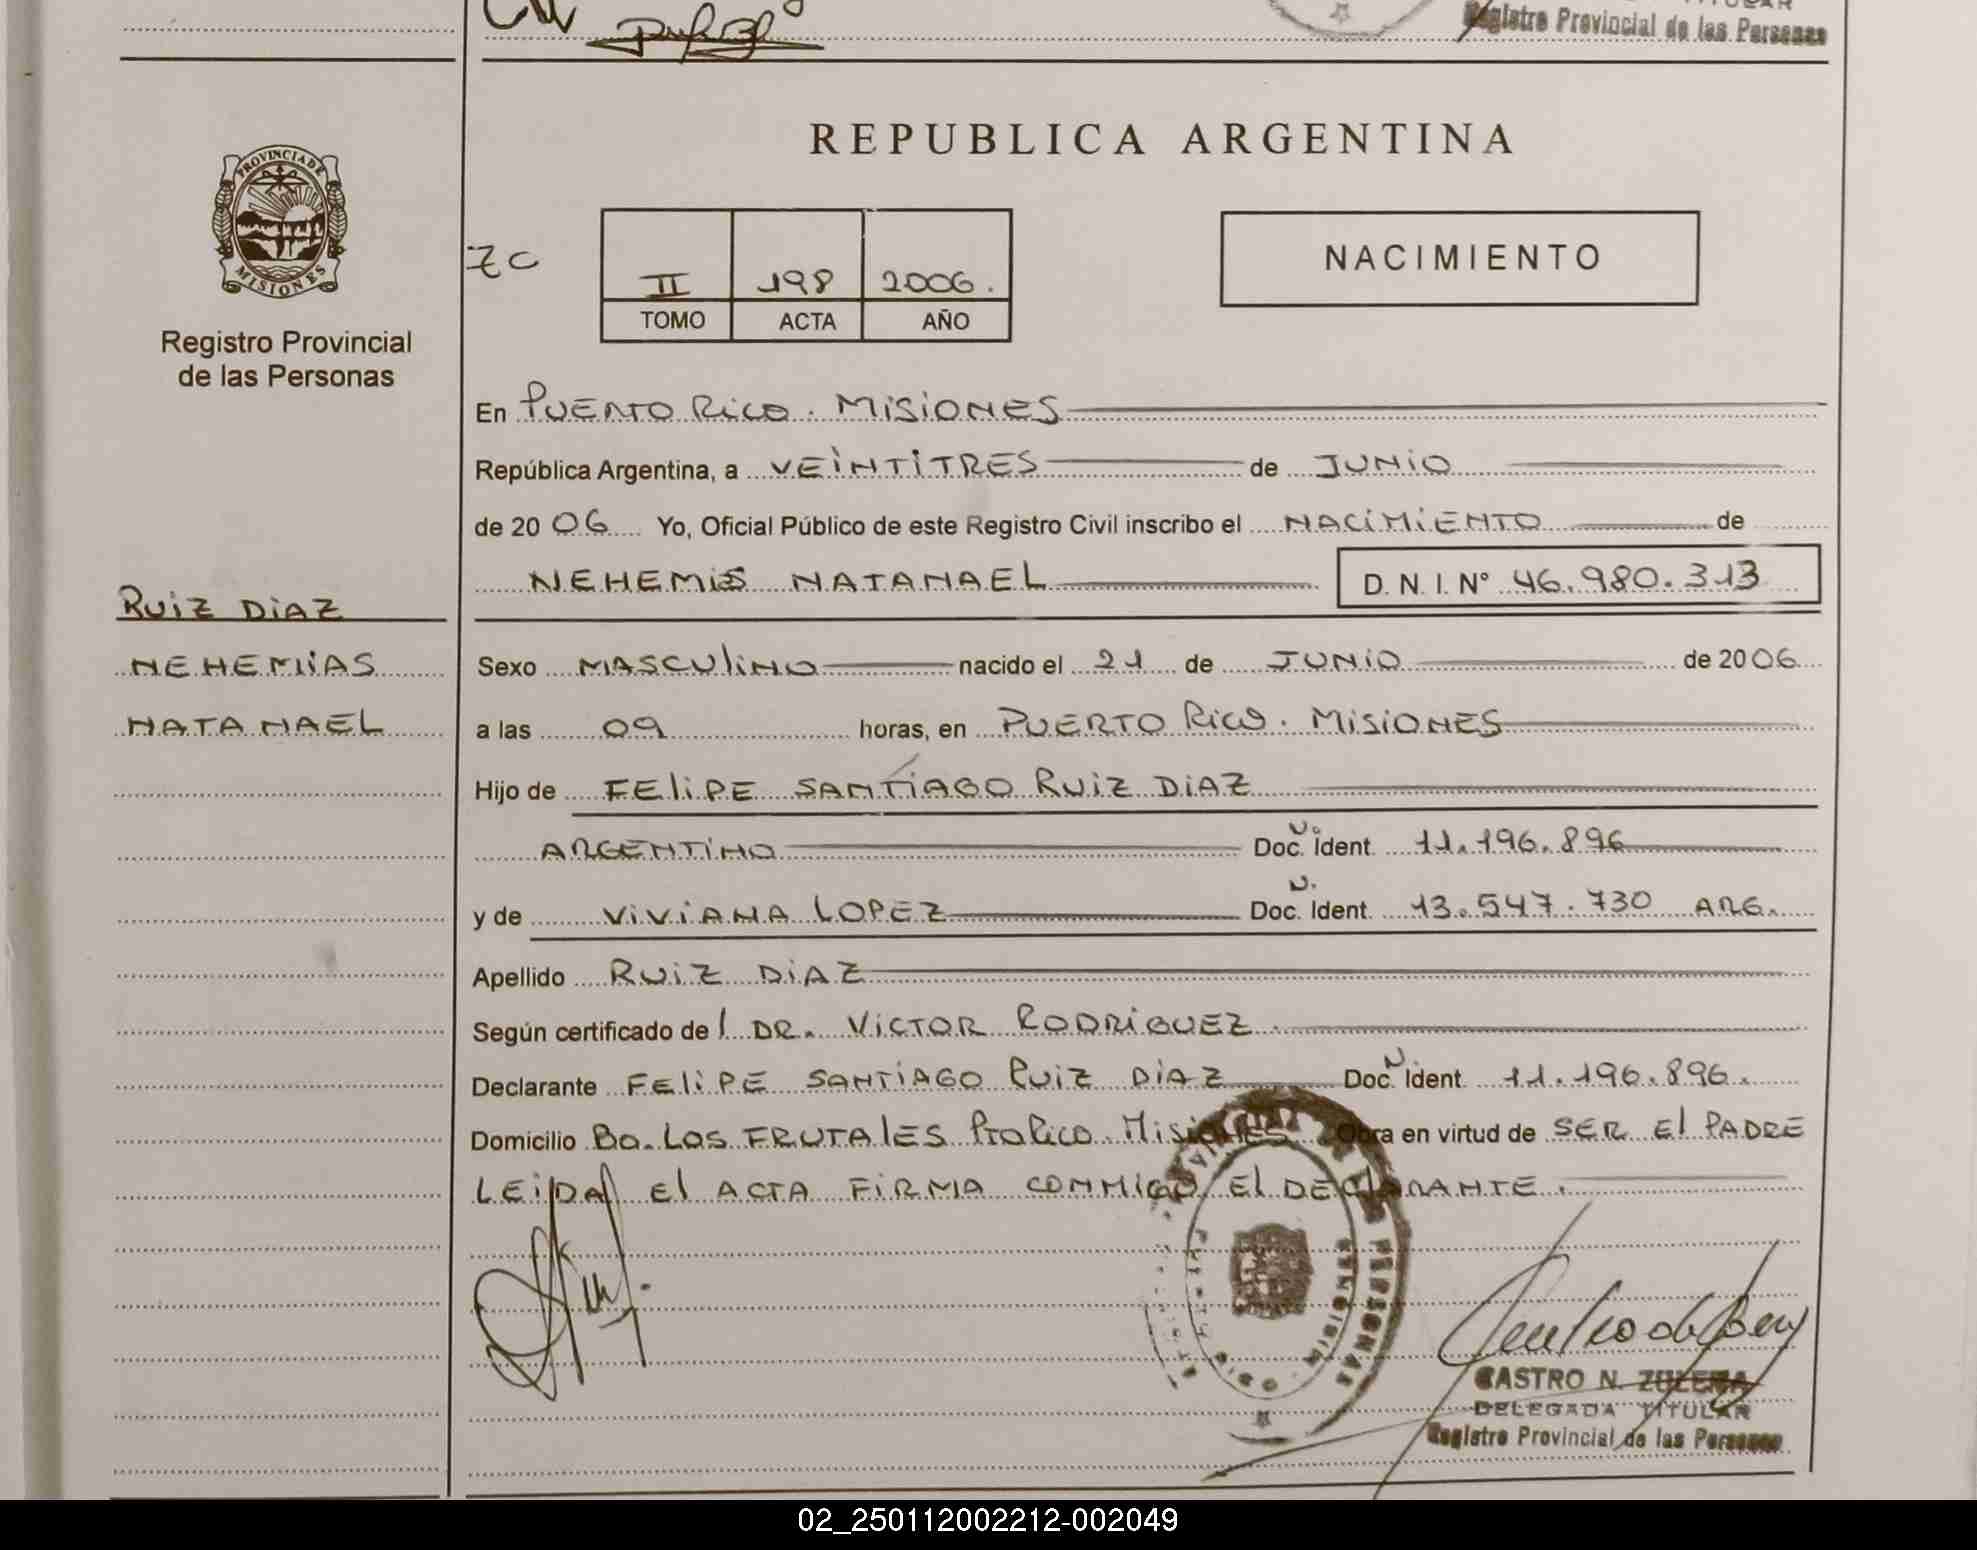 Registro Provincial de las Personas
REPUBLICA ARGENTINA
PROVINCIA DE
MISIONES
Registro Provincial
de las Personas
ZC
II 198 2006.
TOMO ACTA AÑO
NACIMIENTO
En PUERTO RICO. MISIONES
República Argentina, a VEINTITRES de JUNIO
de 2006 Yo, Oficial Público de este Registro Civil inscribo el NACIMIENTO de
NEHEMIS NATANAEL D. N. I. N° 46.980.313
RUIZ DIAZ
NEHEMIAS
NATANAEL
Sexo MASCULINO nacido el 21 de JUNIO de 2006
a las 09 horas, en PUERTO RICO. MISIONES
Hijo de FELIPE SANTIAGO RUIZ DIAZ
ARGENTINO Doc. Ident. 11.196.896
y de VIVIANA LOPEZ Doc. Ident. 13.547.730 ARG.
Apellido RUIZ DIAZ
Según certificado de l DR. VICTOR RODRIGUEZ
Declarante FELIPE SANTIAGO RUIZ DIAZ Doc. Ident. 11.196.896.
Domicilio Bo. LOS FRUTALES Pto Rico. MISIONES Obra en virtud de SER El PADRE
LEIDA El ACTA FIRMA CONMIGO El DECLARANTE.
CASTRO N. ZULEMA
DELEGADA TITULAR
Registro Provincial de las Personas
02_250112002212-002049